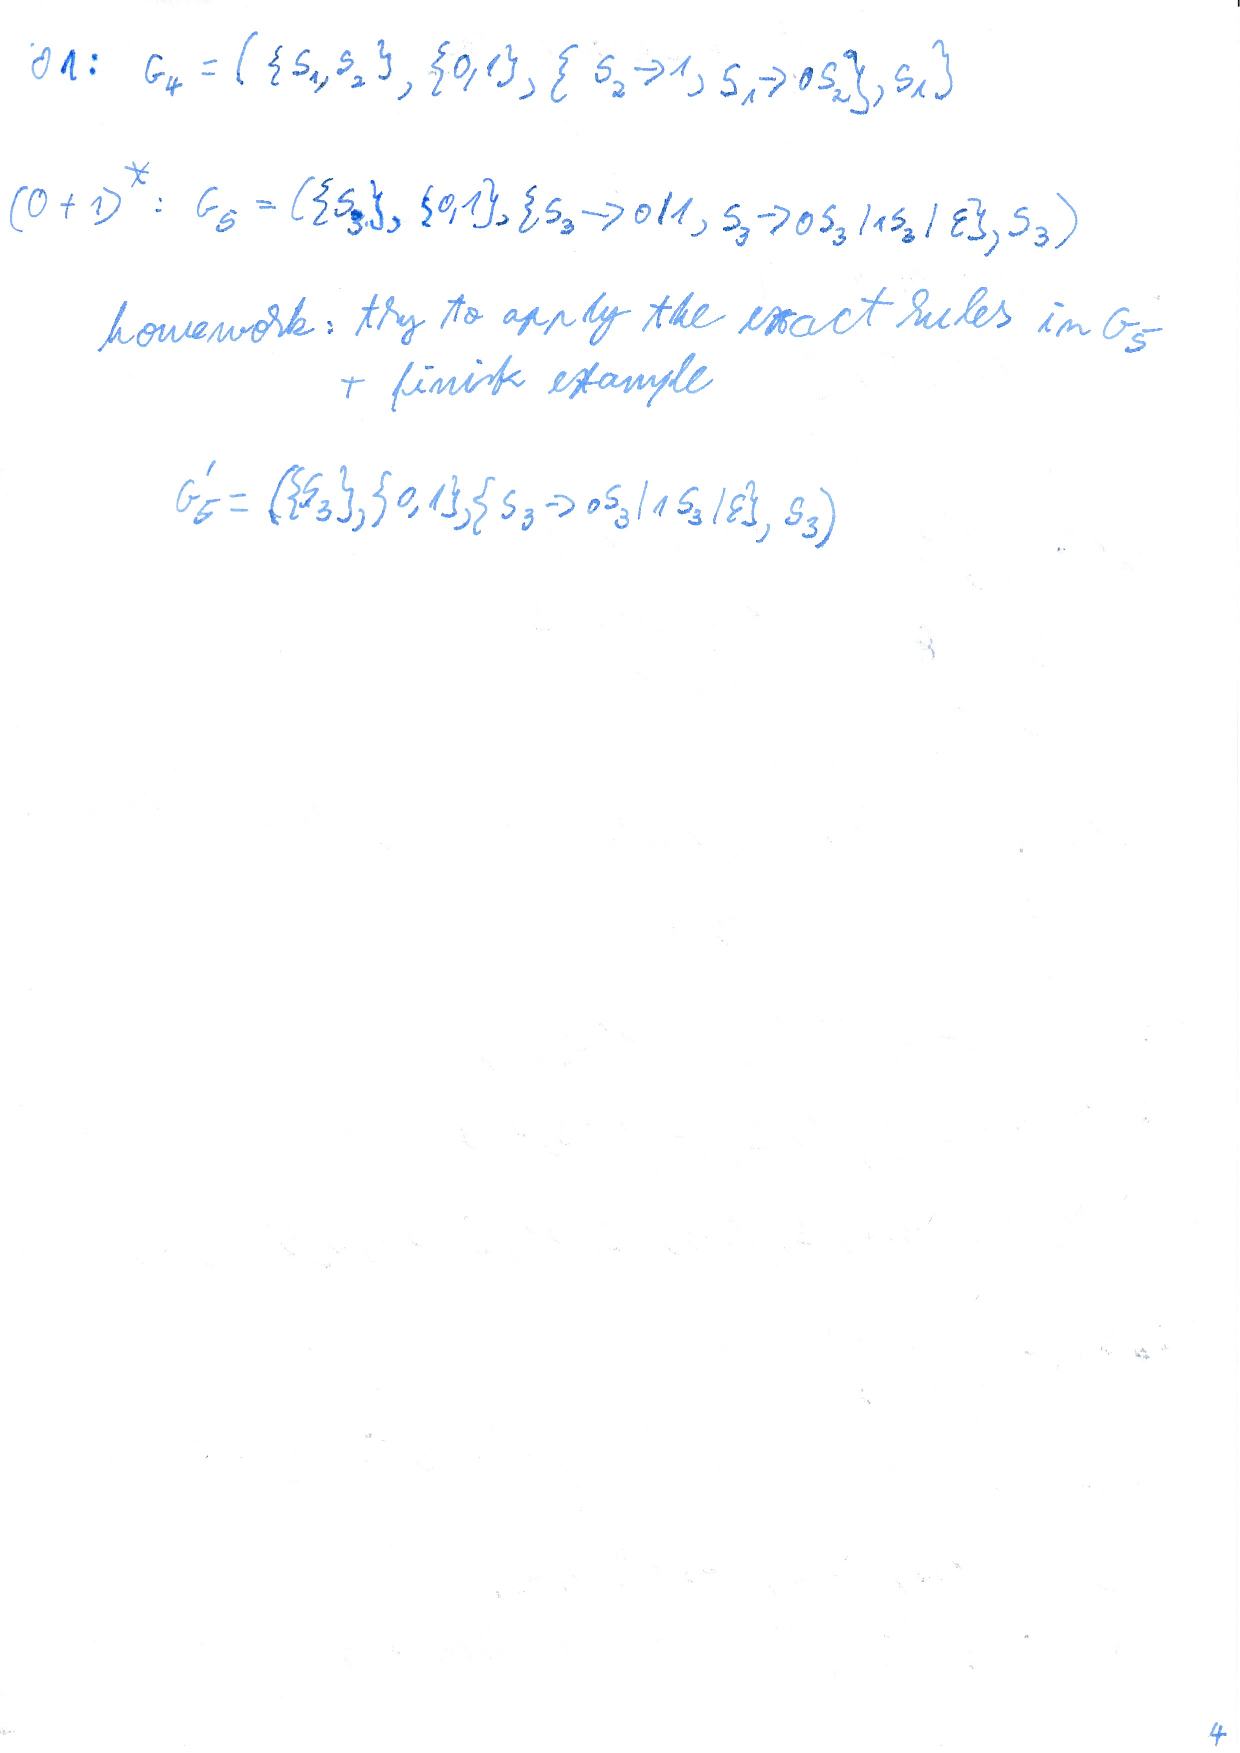 01: G₄ = ( {S₁, S₂}, {0,1}, { S₂ → 1, S₁ → 0S₂}, S₁}
(0 + 1)*: G₅ = ({S₃}, {0,1}, {S₃ → 0|1, S₃ → 0S₃ | 1S₃ | ε}, S₃)
homework: try to apply the exact rules in G₅
+ finish example
G₅' = ({S₃}, {0,1}, {S₃ → 0S₃ | 1S₃ | ε}, S₃)
4